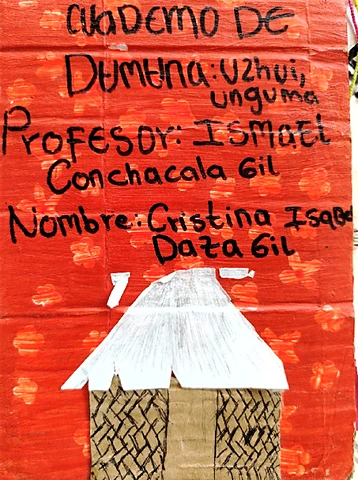 CUADERNO DE
DUMUNA: UZHUI,
UNGUMA
PROFESOR: ISMAEL
Conchacala Gil
Nombre: Cristina Isabel
Daza Gil